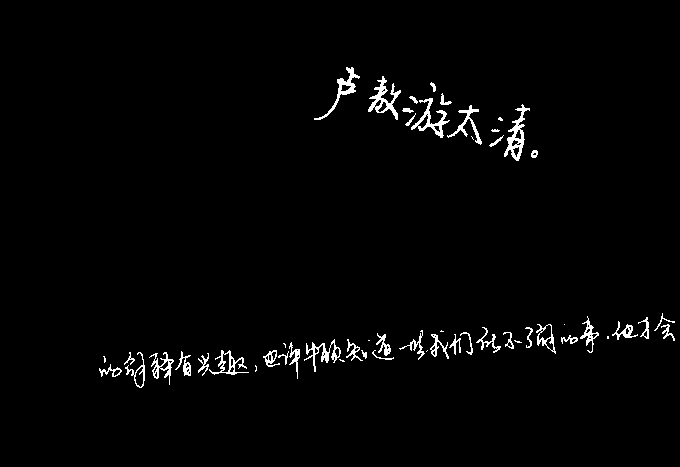 卢敖游太清。
的解释有兴趣，也许牛顿知道一些我们所不了解的事，他才会